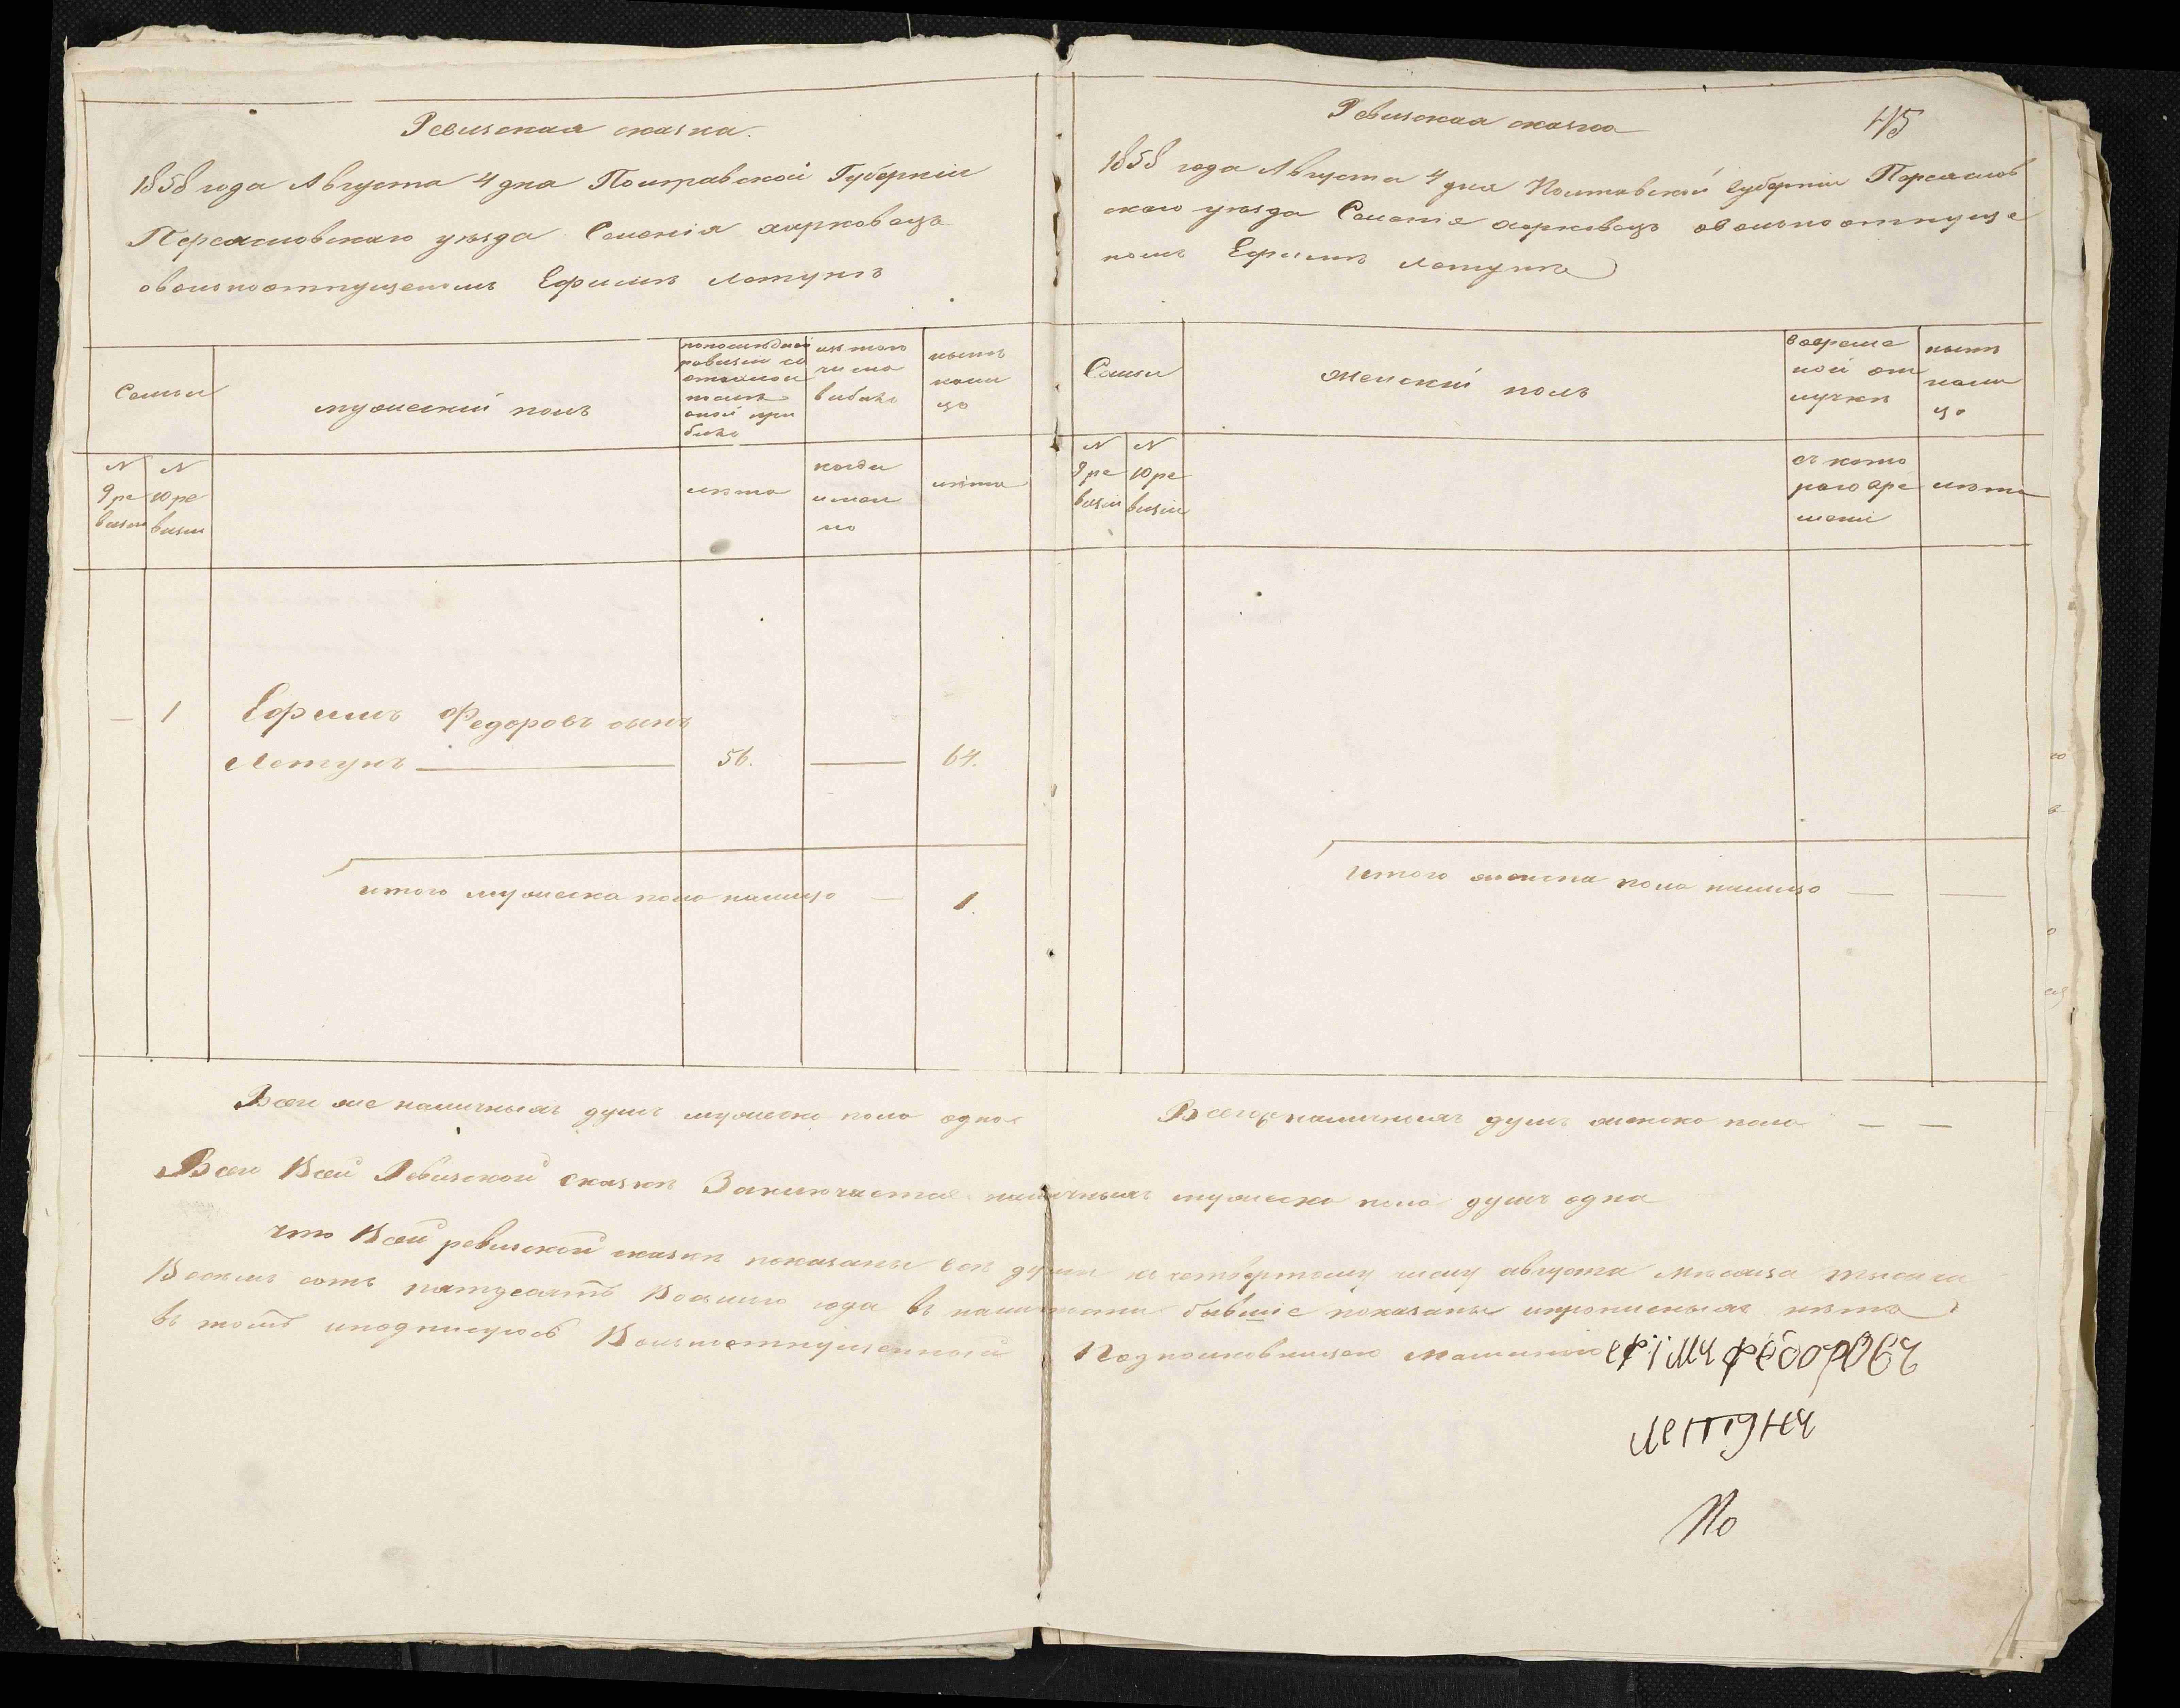 Ревизская сказка.
1858 года Августа 4 дна Полтравской Губернии
Переясловскаго уезда Селенія харковецъ
овольноотпущеномъ Ефимѣ летунѣ
Семьи
мужескій полъ
попоследней ревизіи со стояло и после оной при было
изъ того числа выбыло
нынѣ нали цо
N 9 ре визіи
N 10 ре визіи
лѣта
когда имен но
лѣта
— 1 Ефимъ Федоровъ сынъ
Летунъ — 56. — 64.
итого мужеска пола налицо — 1.
Всеи же наличныхъ душъ мужеска пола одна
Ревизская сказка
45
1858 года Августа 4 дня Полтавской Губерніи Переяслов
скаго уезда Селенія харковецъ овольноотпуще
номъ Ефимѣ летунѣ
Семьи
женскій полъ
вовреме ной от лучки
нынѣ нали цо
N 9 ре визіи
N 10 ре визіи
съ кото раго вре мени
лѣта
Итого женска пола налицо — —
Всего наличныхъ душъ женска пола — —
Всеи Всей Ревизской сказкѣ Заключается наличныхъ мужеска пола душъ одна
что Всей ревизской сказкѣ показаны всѣ души къ четвертому числу августа месяца тысяча
Восемъ сотъ пятдесятъ Восмого года въ наличности бывшіе показаны
въ томъ иподписуюсь Вольноотпущенный Подполковницею ефімъ феборовъ
летунъ
По